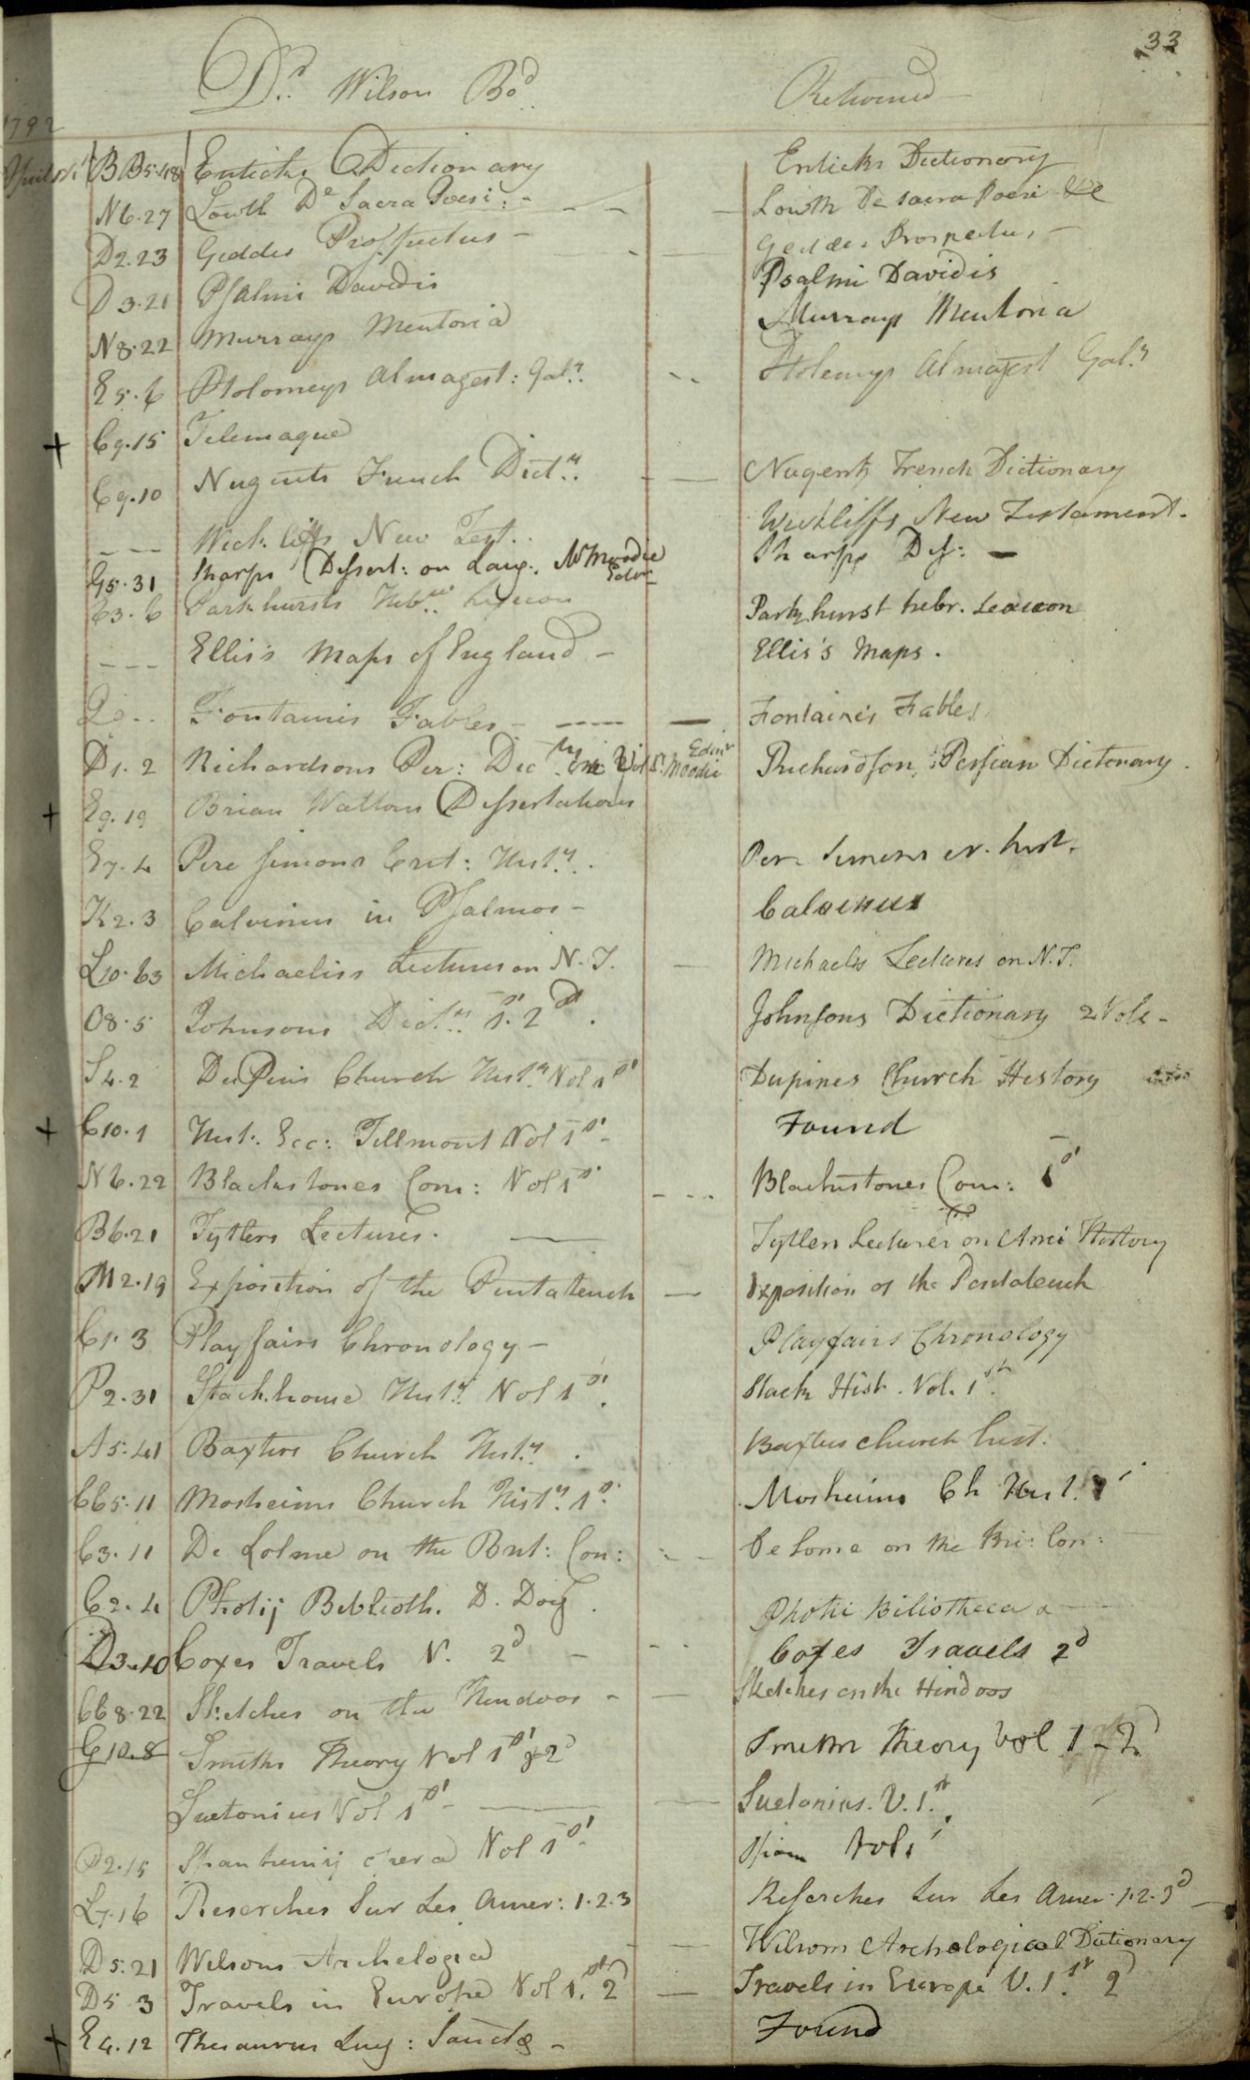 33
Dr. Wilson Bod. Returned
1792
BB5.48 Enticks Dictionary Enticks Dictionary
N6.27 Lowth De Sacra Poesi. - Lowth De sacra Poesi &c
D2.23 Geddes Prospectus - Geddes Prospectus -
D3.21 Psalmi Davidis Psalmi Davidis
N8.22 Murrays Mentoria Murrays Mentoria
E5.6 Ptolomeys Almagest: Gal.. Ptolemys Almagest Gal.
+ C9.15 Telemaque
C9.10 Nugents French Dicty. Nugents French Dictionary
--- Wickliffs New Test. Wickliffs New Testament.
G5.31 Sharps Dissert: on Lang. Mr Moodie Sharps Diss: -
C3.6 Parkhursts Hebw. Lexicon Parkhurst hebr. Lexicon
--- Ellis's Maps of England - Ellis's Maps.
Fontaines Fables - Fontaine's Fables
D1.2 Richardsons Per: Dicty. one Vol. Moodie Edinr Richardson's Persian Dictonary.
+ E9.19 Brian Waltons Dissertations
E7.4 Pere Simons Crit: Histy. Per. Simons cr. hist.
K2.3 Calvinus in Psalmos - Calvinus
L10.63 Michaeliss Lectures on N.T. Michaelis Lectures on N.T.
O8.5 Johnsons Dicty. 1st. 2d. Johnsons Dictionary 2 Vols -
S4.2 DuPins Church Histy Vol 1st Dupines Church History
+ C10.1 Hist. Ecc: Tillmont Vol 1st - Found
N6.22 Blackstones Com: Vol 1st Blackstones Com: 1st
B6.21 Tytlers Lectures. Tytlers Lectures on Anci History
M2.19 Exposition of the Pentateuch Exposition of the Pentateuch
C1.3 Playfairs Chronology - Playfairs Chronology
P2.31 Stackhouse Histy Vol 1st. Stack Hist. Vol. 1st.
A5.41 Baxters Church Histy. Baxters church hist.
CC5.11 Mosheims Church Histy. 1st. Mosheims Ch Hist. 1
C3.11 De Lolme on the Brit: Con: De Lome on the Bri: Con:
C2.4 Photij Biblioth. D. Doig. Photii Biliotheca
D3.10 Coxes Travels V. 2d - Coxes Travels 2d
CC8.22 Sketches on the Hindoos - Sketches on the Hindoos
G10.8 Smiths Theory Vol 1st & 2d Smiths Theory Vol 1 - 2d
Suetonius Vol 1st - Suetonius. V. 1st.
P2.15 Spanhemij opera Vol 1st. Span Vol 1
L7.16 Reserches Sur Les Amer: 1.2.3 Reserches Sur Les Amer. 1.2.3d
D5.21 Wilsons Archelogia Wilsons Archelogical Dictionary
D5.3 Travels in Europe Vol 1st. 2d Travels in Europe V. 1st. 2d
+ E4.12 Thesaurus Ling: Sanctæ - Found